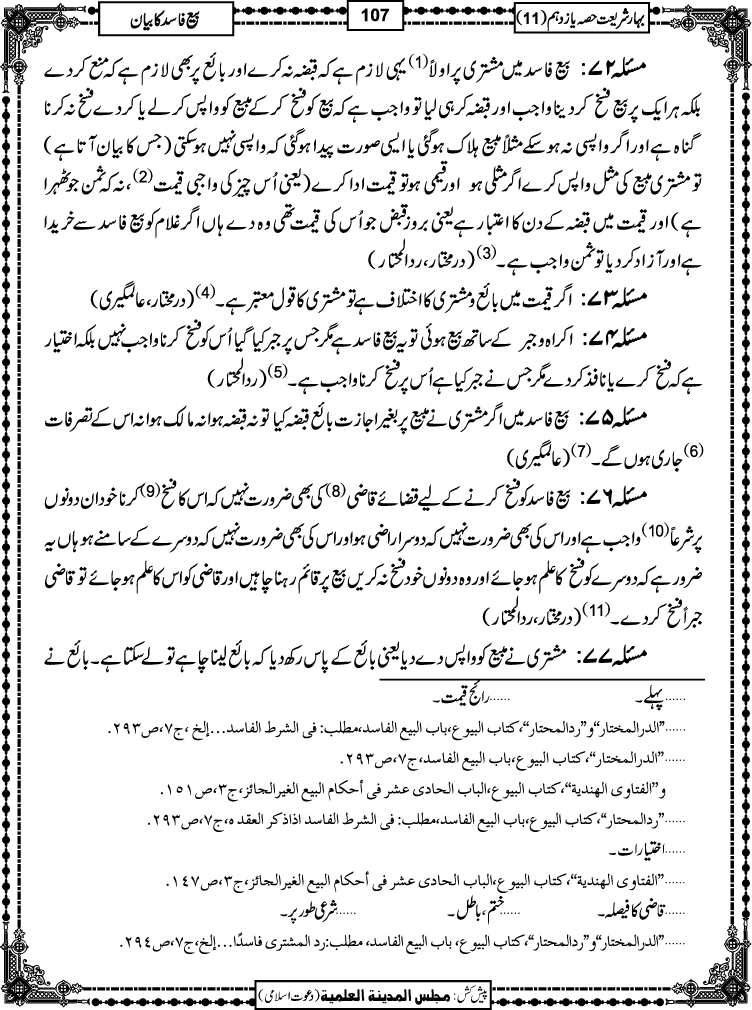 بہار شریعت حصہ یازدہم (11)
107
بیع فاسد کا بیان
مسئلہ ۷۲: بیع فاسد میں مشتری پر اولاً (1) یہی لازم ہے کہ قبضہ نہ کرے اور بائع پر بھی لازم ہے کہ منع کردے
بلکہ ہر ایک پر بیع فسخ کردینا واجب اور قبضہ کر ہی لیا تو واجب ہے کہ بیع کو فسخ کرکے مبیع کو واپس کرلے یا کردے فسخ نہ کرنا
گناہ ہے اور اگر واپسی نہ ہوسکے مثلاً مبیع ہلاک ہوگئی یا ایسی صورت پیدا ہوگئی کہ واپسی نہیں ہوسکتی (جس کا بیان آتا ہے)
تو مشتری مبیع کی مثل واپس کرے اگر مثلی ہو اور قیمی ہو تو قیمت ادا کرے (یعنی اُس چیز کی واجبی قیمت (2)، نہ کہ ثمن جو ٹھہرا
ہے) اور قیمت میں قبضہ کے دن کا اعتبار ہے یعنی بروز قبض جو اُس کی قیمت تھی وہ دے ہاں اگر غلام کو بیع فاسد سے خریدا
ہے اور آزاد کردیا تو ثمن واجب ہے۔ (3) (درمختار، ردالمحتار)
مسئلہ ۷۳: اگر قیمت میں بائع و مشتری کا اختلاف ہے تو مشتری کا قول معتبر ہے۔ (4) (درمختار، عالمگیری)
مسئلہ ۷۴: اکراہ و جبر کے ساتھ بیع ہوئی تو یہ بیع فاسد ہے مگر جس پر جبر کیا گیا اُس کو فسخ کرنا واجب نہیں بلکہ اختیار
ہے کہ فسخ کرے یا نافذ کردے مگر جس نے جبر کیا ہے اُس پر فسخ کرنا واجب ہے۔ (5) (ردالمحتار)
مسئلہ ۷۵: بیع فاسد میں اگر مشتری نے مبیع پر بغیر اجازت بائع قبضہ کیا تو نہ قبضہ ہوا نہ مالک ہوا نہ اس کے تصرفات
(6) جاری ہوں گے۔ (7) (عالمگیری)
مسئلہ ۷۶: بیع فاسد کو فسخ کرنے کے لیے قضائے قاضی (8) کی بھی ضرورت نہیں کہ اس کا فسخ (9) کرنا خود ان دونوں
پر شرعاً (10) واجب ہے اور اس کی بھی ضرورت نہیں کہ دوسرا راضی ہو اور اس کی بھی ضرورت نہیں کہ دوسرے کے سامنے ہو ہاں یہ
ضرور ہے کہ دوسرے کو فسخ کا علم ہوجائے اور وہ دونوں خود فسخ نہ کریں بیع پر قائم رہنا چاہیں اور قاضی کو اس کا علم ہوجائے تو قاضی
جبراً فسخ کردے۔ (11) (درمختار، ردالمحتار)
مسئلہ ۷۷: مشتری نے مبیع کو واپس دے دیا یعنی بائع کے پاس رکھ دیا کہ بائع لینا چاہے تو لے سکتا ہے۔ بائع نے
......پہلے۔ ......رائج قیمت۔
......”الدرالمختار“و”ردالمحتار“، کتاب البیوع، باب البیع الفاسد، مطلب: فی الشرط الفاسد...إلخ، ج۷، ص۲۹۳.
......”الدرالمختار“، کتاب البیوع، باب البیع الفاسد، ج۷، ص۲۹۳.
و”الفتاوی الھندیة“، کتاب البیوع، الباب الحادی عشر فی أحکام البیع الغیرالجائز، ج۳، ص۱۵۱.
......”ردالمحتار“، کتاب البیوع، باب البیع الفاسد، مطلب: فی الشرط الفاسد اذاذکر العقدہ، ج۷، ص۲۹۳.
......اختیارات۔
......”الفتاوی الھندیة“، کتاب البیوع، الباب الحادی عشر فی أحکام البیع الغیرالجائز، ج۳، ص۱۴۷.
......قاضی کا فیصلہ۔ ......ختم، باطل۔ ......شرعی طور پر۔
......”الدرالمختار“و”ردالمحتار“، کتاب البیوع، باب البیع الفاسد، مطلب: رد المشتری فاسدًا...إلخ، ج۷، ص۲۹۴.
پیش کش: مجلس المدینة العلمیة (دعوت اسلامی)